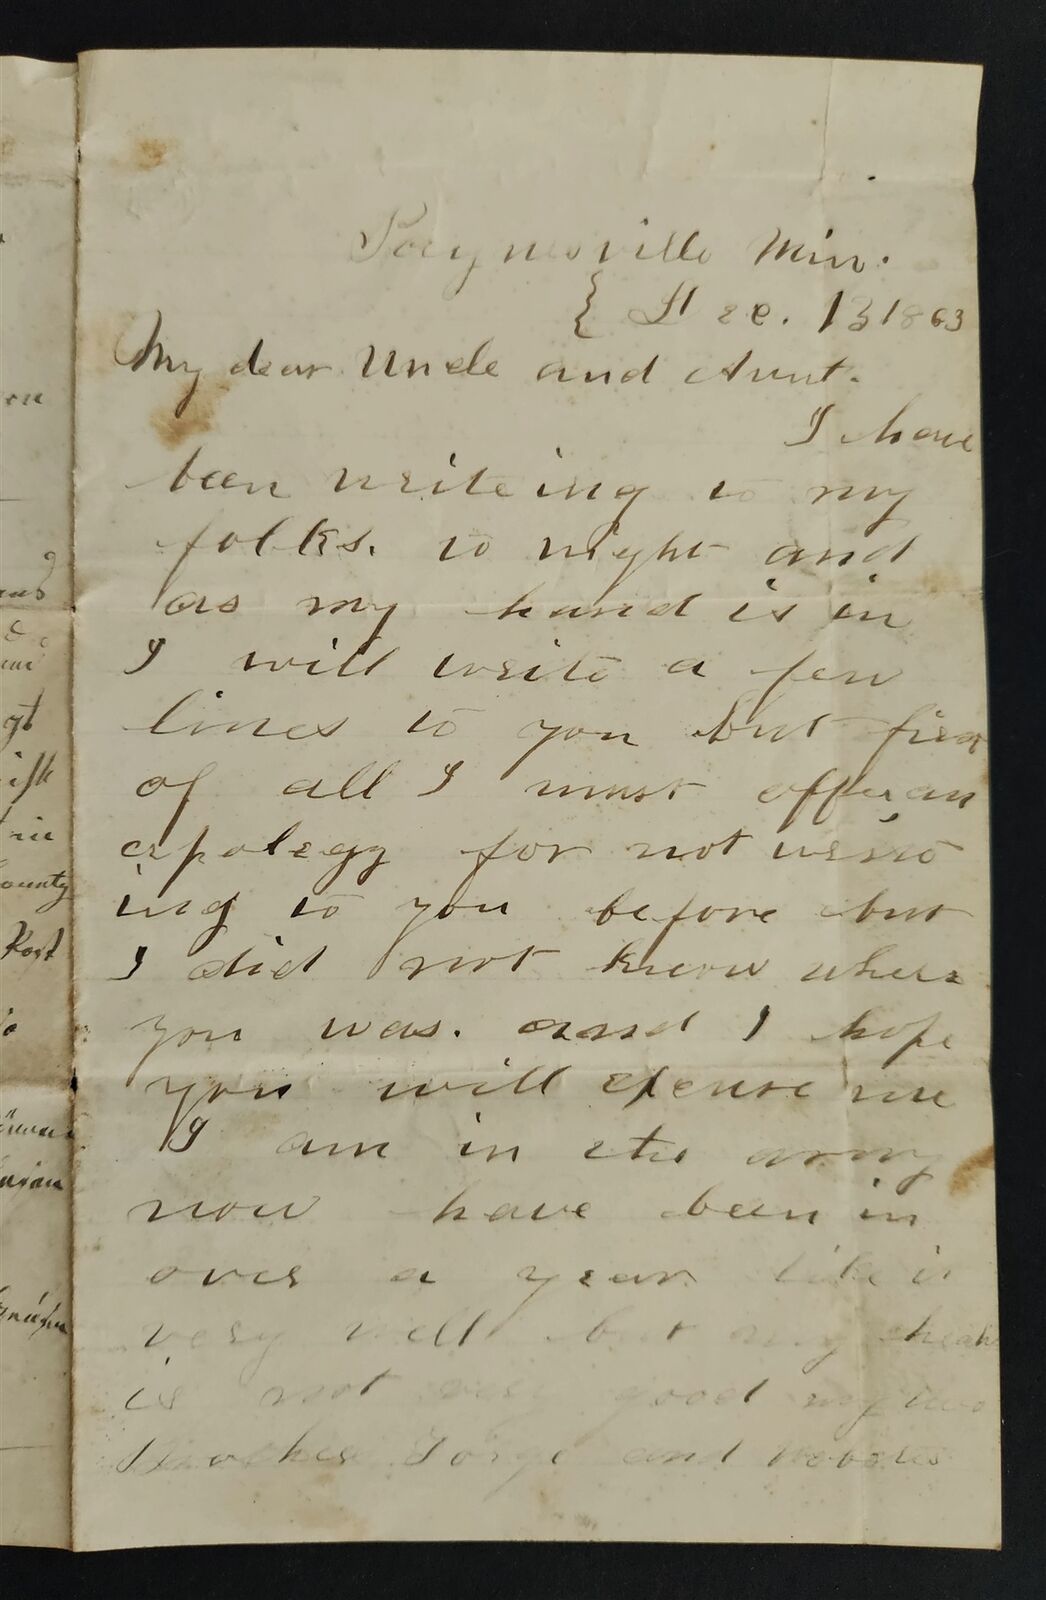 Paynesville Min.
Dec. 13 1863
My dear Uncle and Aunt.
I have
been writeing to my
folks. to night and
as my hand is in
I will write a few
lines to you but first
of all I must offer an
apolegy for not writ
ing to you before but
I did not know where
you was. and I hope
you will excuse me
I am in the army
now have been in
over a year like it
very well but my
is not very good my two
Brothers Gorge and
on
gt
County
Post